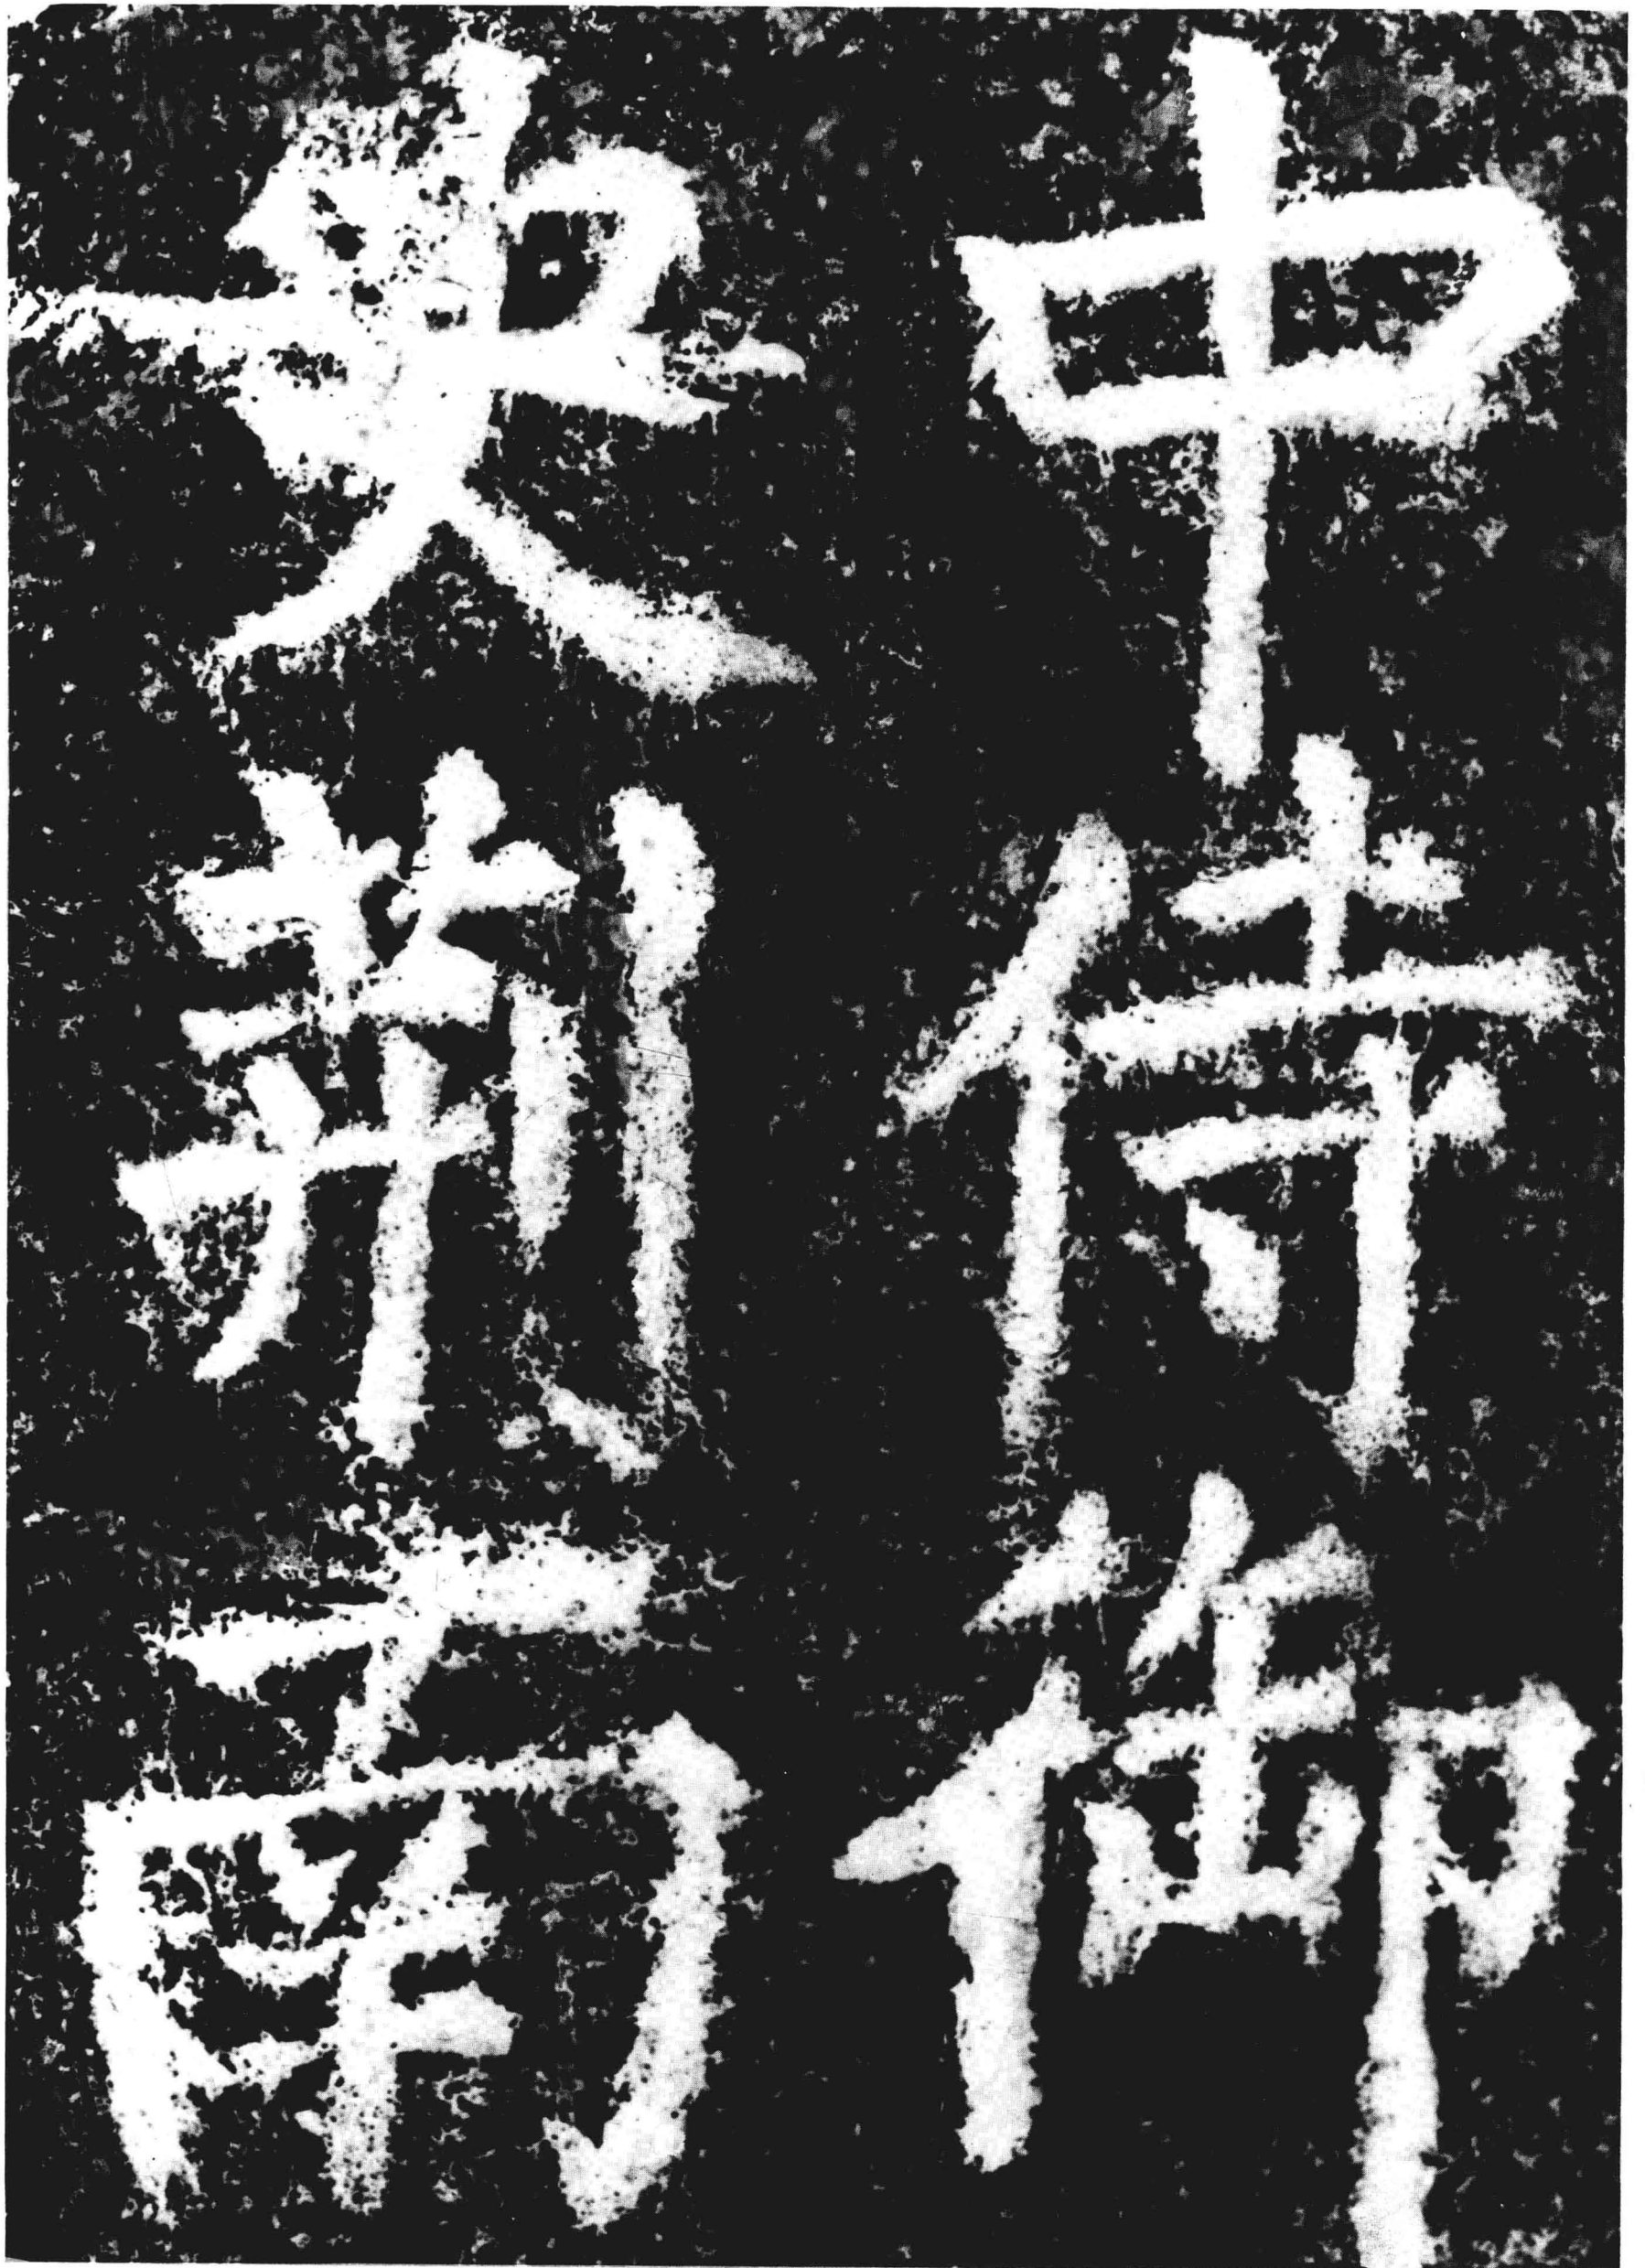 中侍御
史荆南